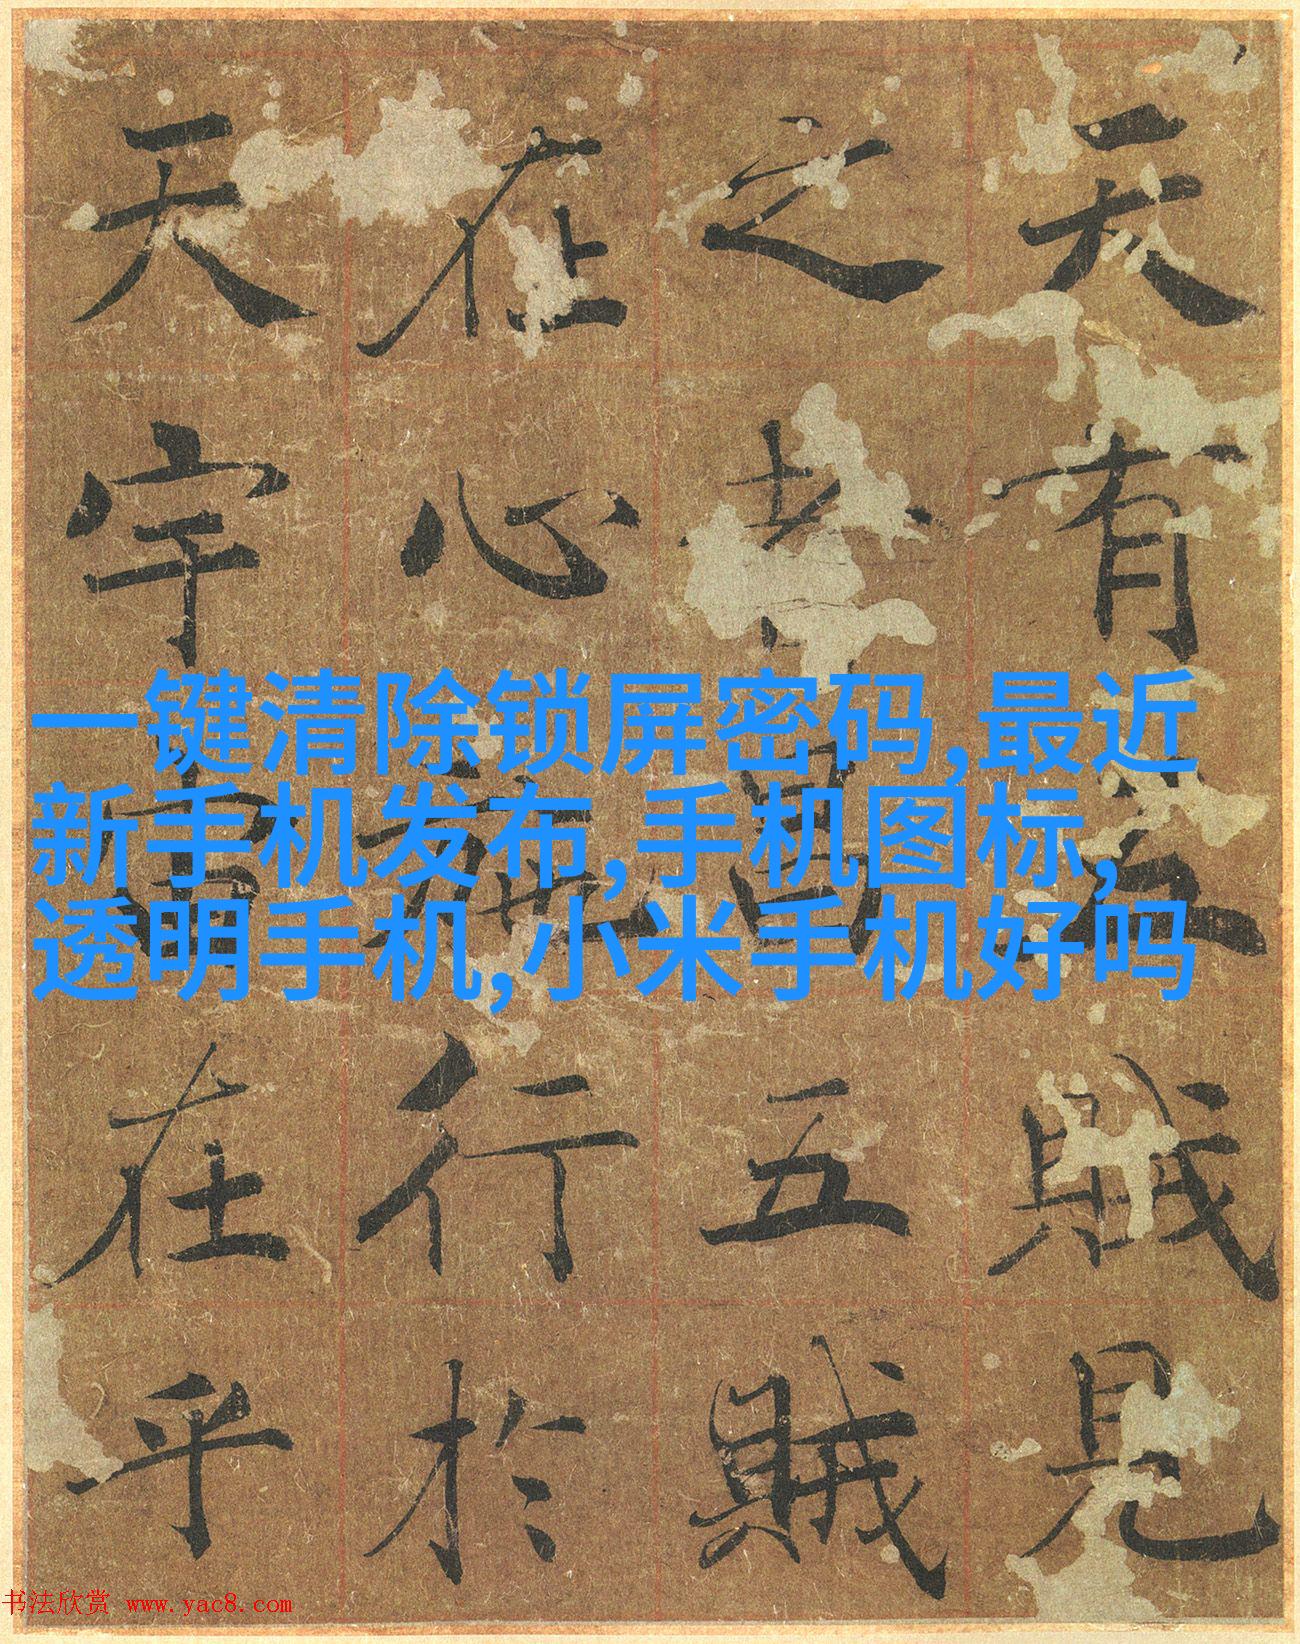 天有五賊見
之者昌五賊
在心施行於
天宇宙在乎
一键清除锁屏密码,最近
新手机发布,手机图标,
透明手机,小米手机好吗
书法欣赏 www.yac8.com